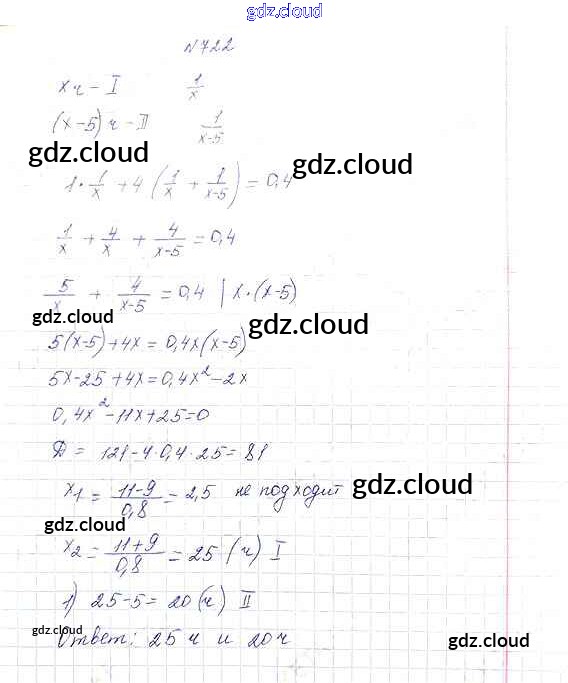 gdz.cloud
N 722
x ч – I 1/x
(x-5) ч – II 1/(x-5)
gdz.cloud
gdz.cloud
1 · 1/x + 4 (1/x + 1/(x-5)) = 0,4
1/x + 4/x + 4/(x-5) = 0,4
5/x + 4/(x-5) = 0,4 | x·(x-5)
gdz.cloud
gdz.cloud
5(x-5)+4x = 0,4x(x-5)
5x-25+4x=0,4x²-2x
0,4x²-11x+25=0
D = 121-4·0,4·25=81
x₁ = (11-9)/0,8 = 2,5 не подходит
gdz.cloud
gdz.cloud
x₂ = (11+9)/0,8 = 25 (ч) I
1) 25-5=20(ч) II
gdz.cloud
gdz.cloud
Ответ: 25 ч и 20 ч